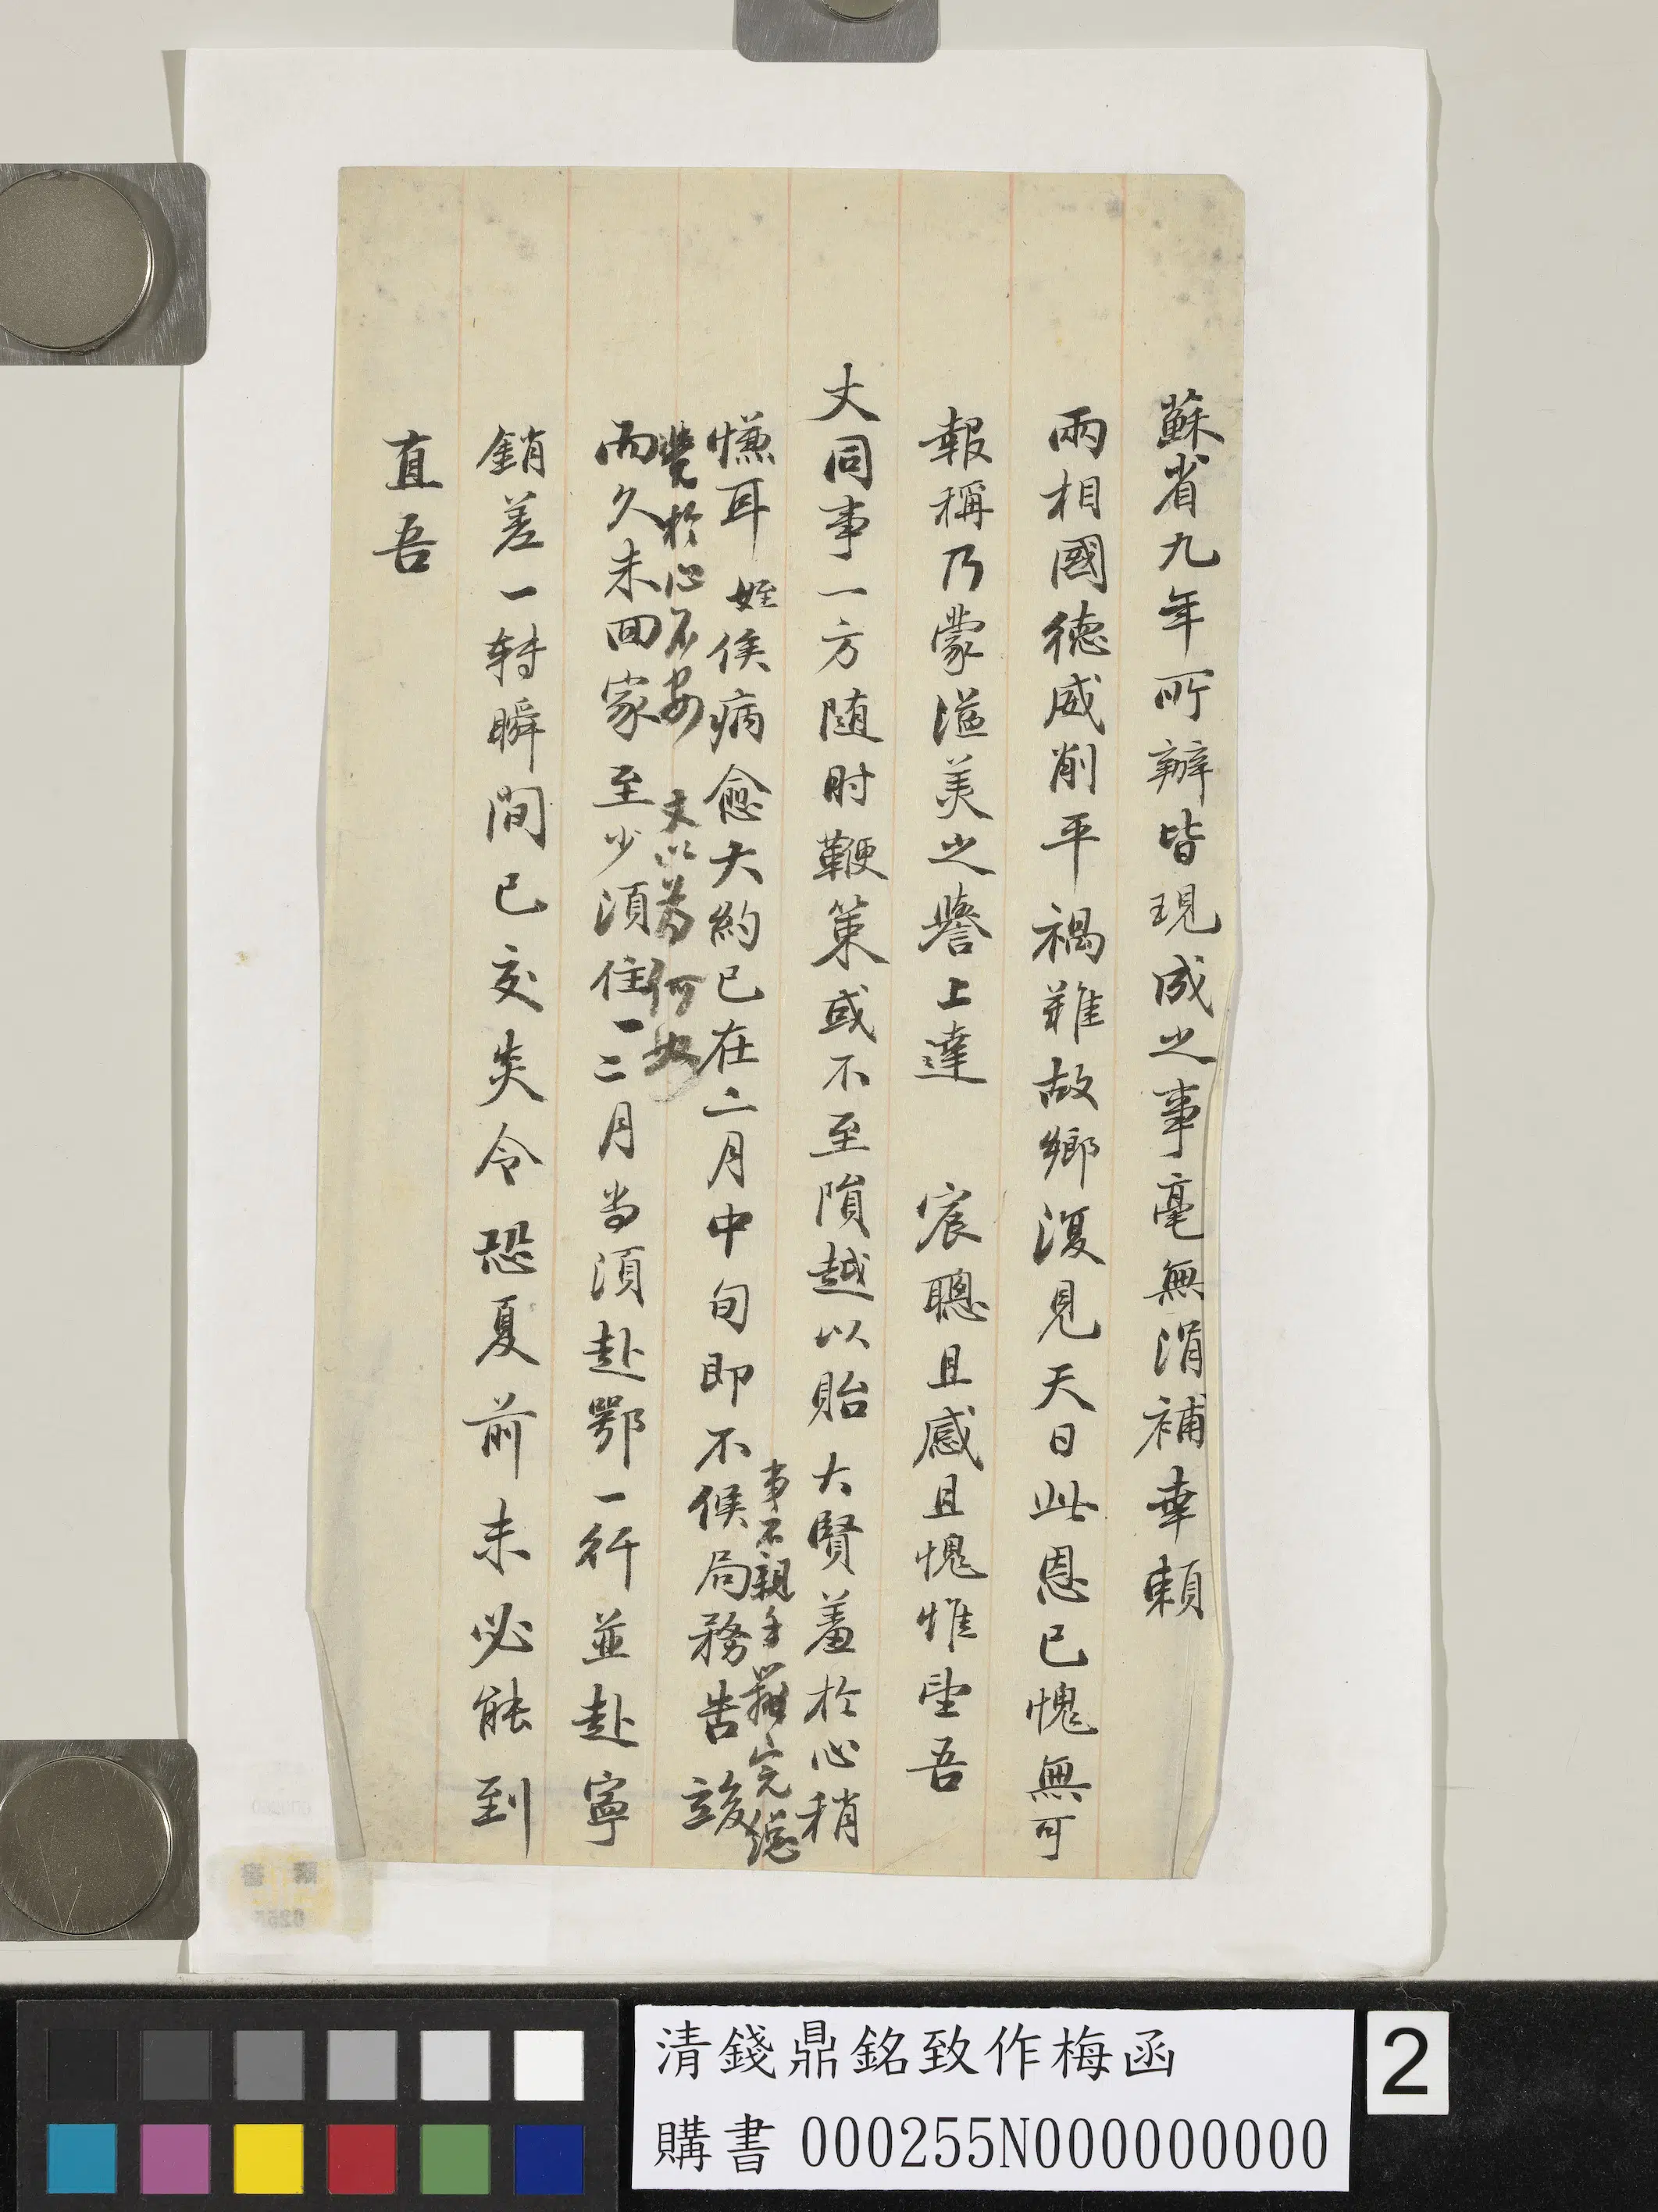 蘇省九年所辦皆現成之事毫無涓補幸賴
兩相國德威削平禍難故鄉復見天日此恩已愧無可
報稱乃蒙溢美之譽上達　宸聰且感且愧惟望吾
丈同事一方隨时鞭策或不至隕越以貽　大賢羞於心稍
慊耳姪侯病愈大約已在二月中旬即不候局務告竣
事不親手辦完總
覺於心不安　丈以為何如
而久未回家至少須住一二月尚須赴鄂一行並赴寧
銷差一轉瞬間已交炎令恐夏前未必能到
直吾
清錢鼎銘致作梅函
購書 000255N000000000
2